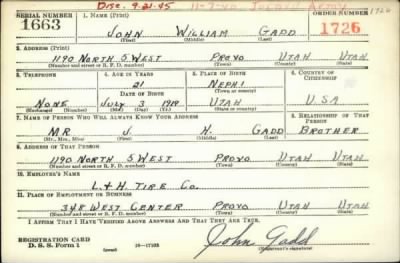 Disc. 9-21-45 11-7-40 Joined Army 1726
SERIAL NUMBER 1. NAME (Print) ORDER NUMBER
1663 JOHN WILLIAM GADD 1726
(First) (Middle) (Last)
2. ADDRESS (Print)
1190 NORTH 5 WEST PROVO UTAH UTAH
(Number and street or R. F. D. number) (Town) (County) (State)
3. TELEPHONE 4. AGE IN YEARS 5. PLACE OF BIRTH 6. COUNTRY OF CITIZENSHIP
21 NEPHI
DATE OF BIRTH (Town or county)
NONE JULY 3 1919 UTAH U.S.A
(Exchange) (Number) (Mo.) (Day) (Yr.) (State or country)
7. NAME OF PERSON WHO WILL ALWAYS KNOW YOUR ADDRESS 8. RELATIONSHIP OF THAT PERSON
MR J. H. GADD BROTHER
(Mr., Mrs., Miss) (First) (Middle) (Last)
9. ADDRESS OF THAT PERSON
1190 NORTH 5 WEST PROVO UTAH UTAH
(Number and street or R. F. D. number) (Town) (County) (State)
10. EMPLOYER'S NAME
L. & H. TIRE CO.
11. PLACE OF EMPLOYMENT OR BUSINESS
348 WEST CENTER PROVO UTAH UTAH
(Number and street or R. F. D. number) (Town) (County) (State)
I AFFIRM THAT I HAVE VERIFIED ABOVE ANSWERS AND THAT THEY ARE TRUE.
REGISTRATION CARD
D. S. S. Form 1 16—17105 John Gadd
(Registrant's signature)